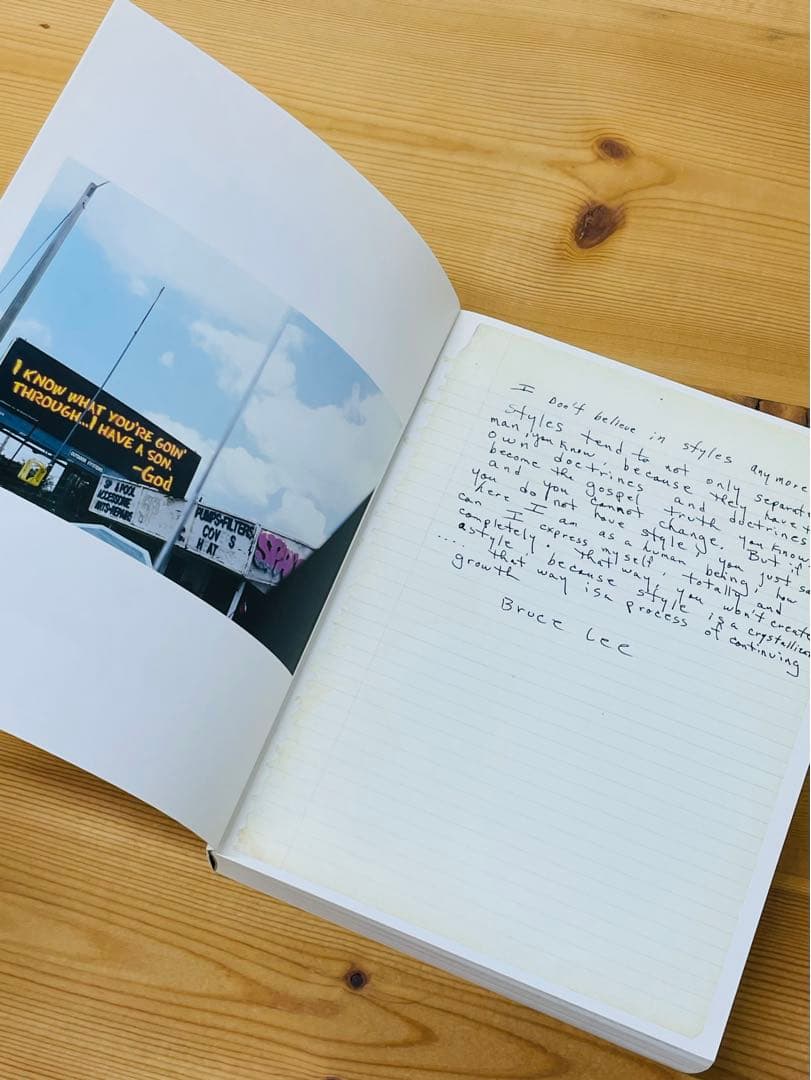 I KNOW WHAT YOU'RE GOIN'
THROUGH...I HAVE A SON.
-God
OUTDOOR SYSTEMS
POOL
ACCESSORIE
PUMPS-FILTERS
COV S
H AT
I Don't believe in styles anymore
Styles tend to not only separate
man, you know, because they have t
own doctrines and doctrines
become the gospel truth you know
and you cannot change. But if
you do not have style, you just sa
here I am as a human being, how
can I express my self, totally and
completely. that way, you won't create
a style, because style is a crystalliza
.... that way is a process of continuing
growth
Bruce Lee